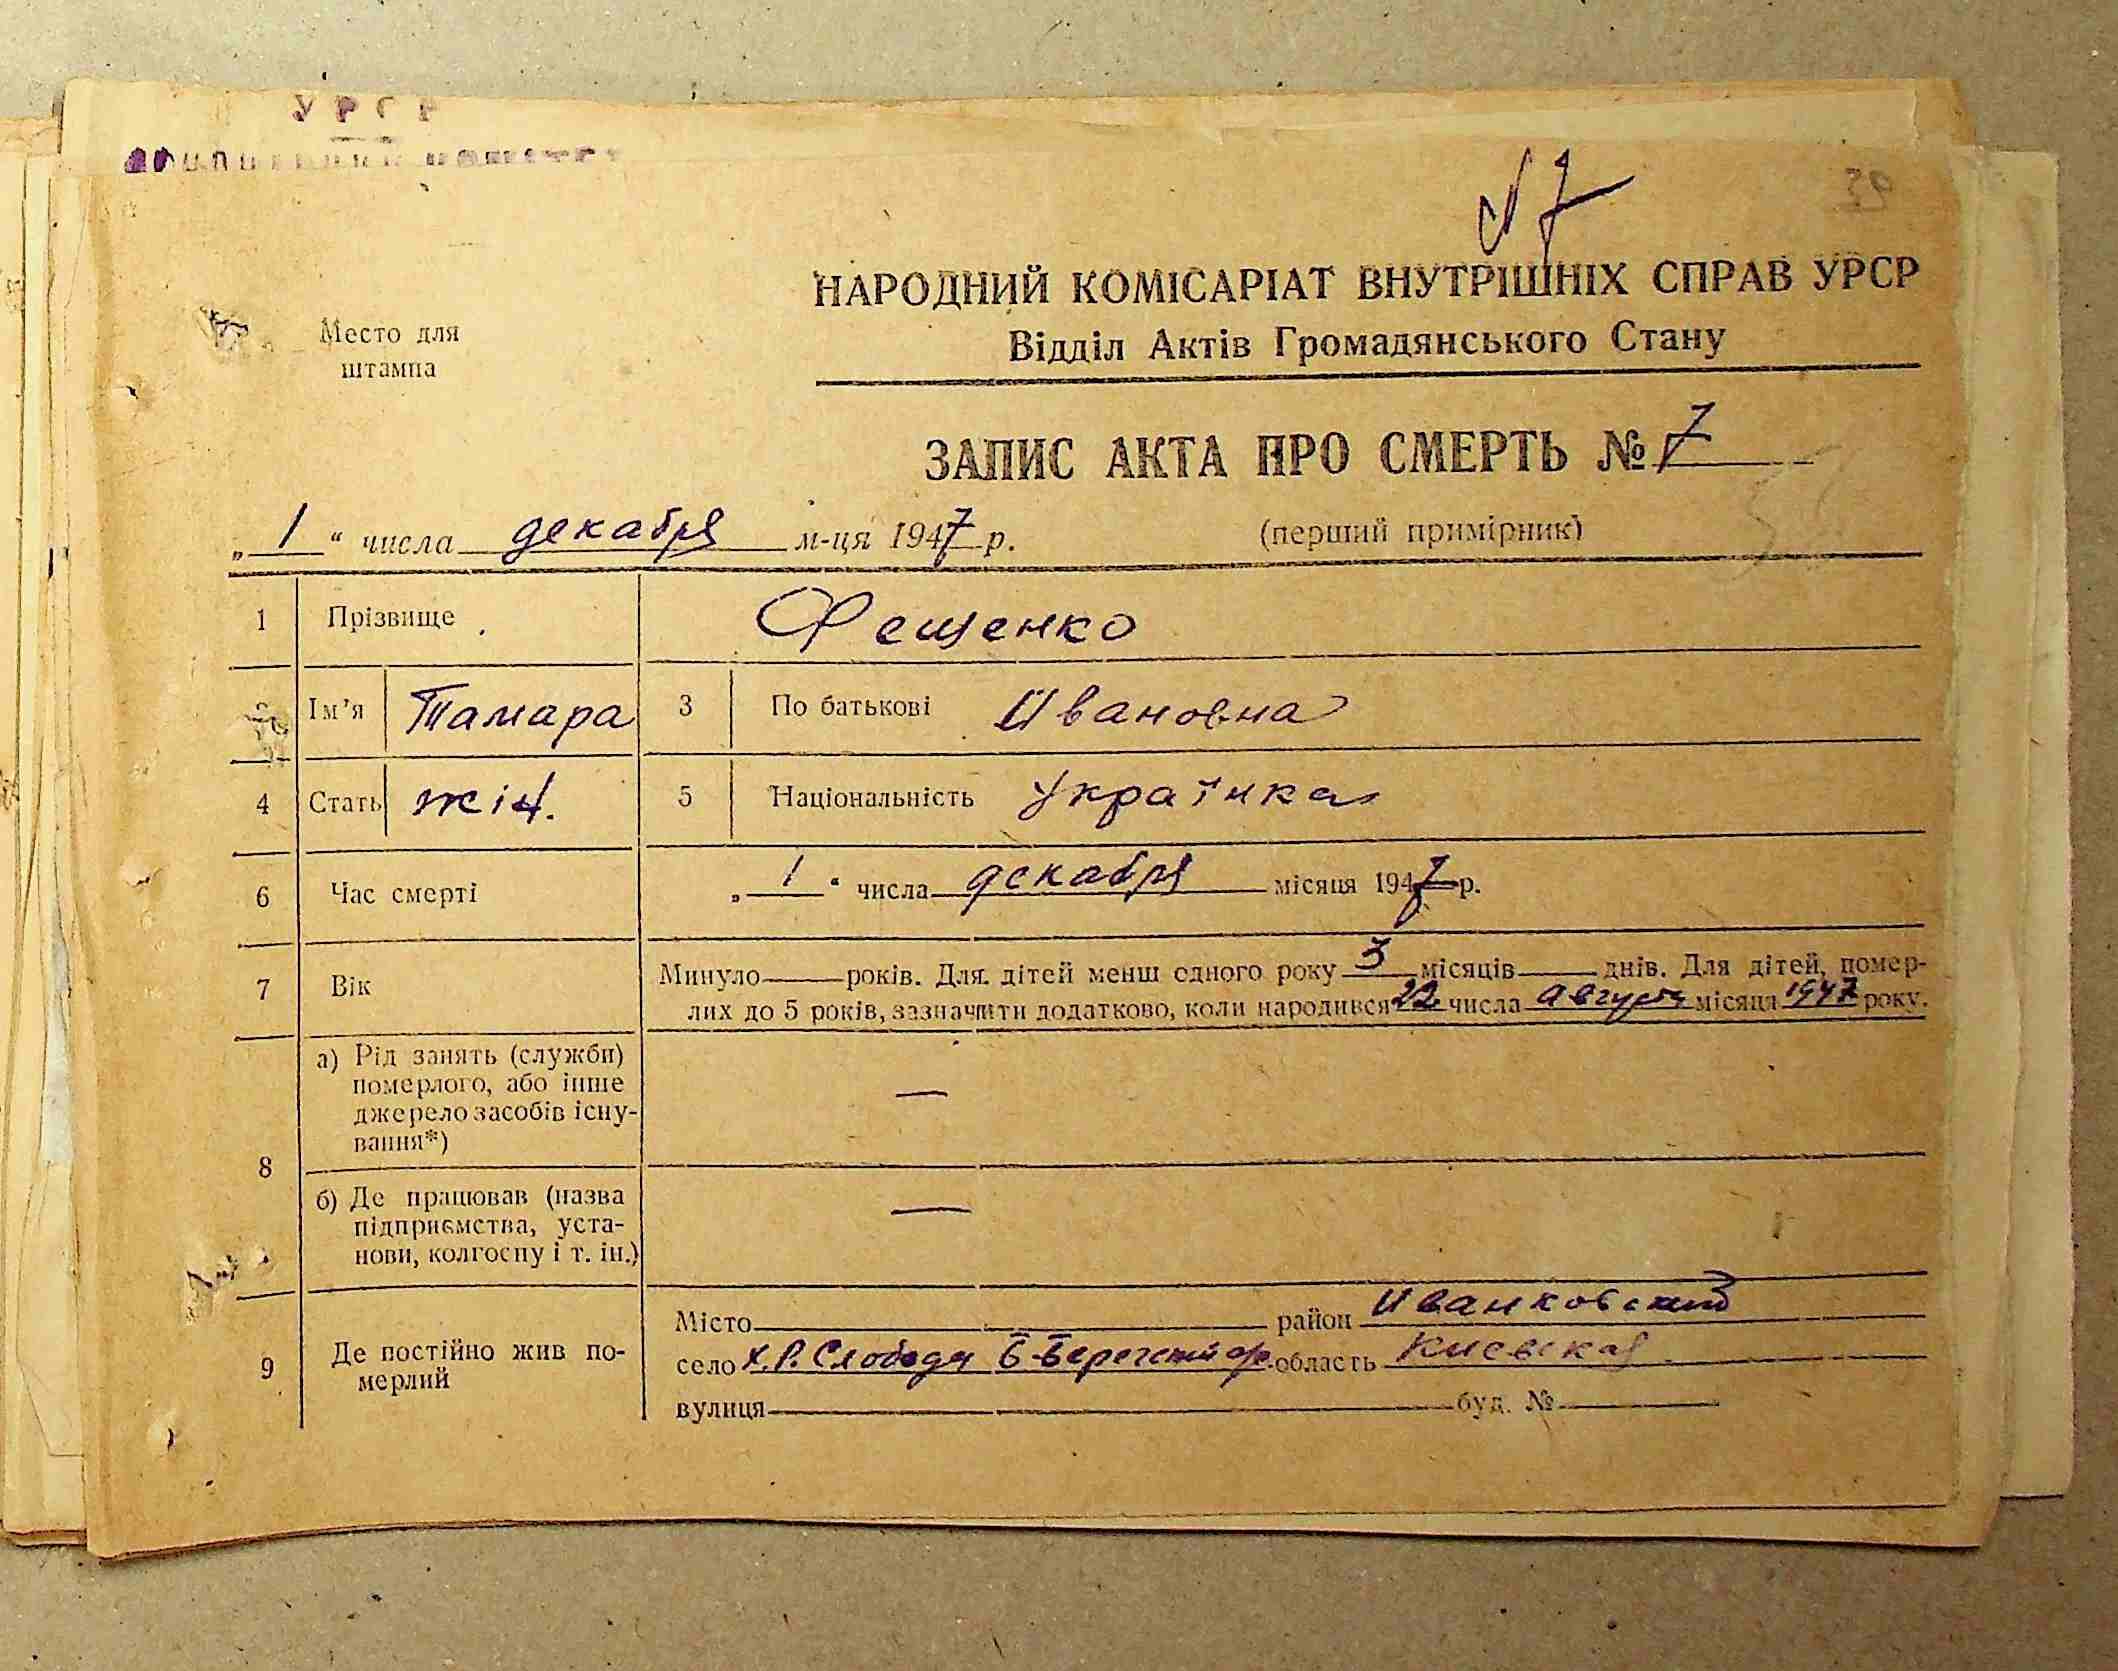 УРСР
№ 7
39
НАРОДНИЙ КОМІСАРІАТ ВНУТРІШНІХ СПРАВ УРСР
Место для
штампа
Відділ Актів Громадянського Стану
ЗАПИС АКТА ПРО СМЕРТЬ № 7
„1“ числа декабря м-ця 1947 р. (перший примірник)
1 Прізвище Фещенко
Ім'я Тамара 3 По батькові Ивановна
4 Стать жін. 5 Національність Українка
6 Час смерті „1“ числа декабря місяця 1947 р.
7 Вік Минуло років. Для дітей менш одного року 3 місяців днів. Для дітей, помер-
лих до 5 років, зазначити додатково, коли народився 22 числа августа місяця 1947 року.
8 а) Рід занять (служби)
померлого, або інше
джерело засобів існу-
вання*) —
б) Де працював (назва
підприємства, уста-
нови, колгоспу і т. ін.) —
9 Де постійно жив по-
мерлий
Місто район Иванковский
село х. Р. Слобода область Киевская
вулиця буд. №